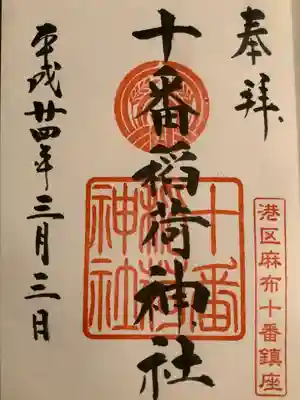 奉拝
港区麻布十番鎮座
十番稲荷神社
十番稲荷神社
平成廿四年三月三日